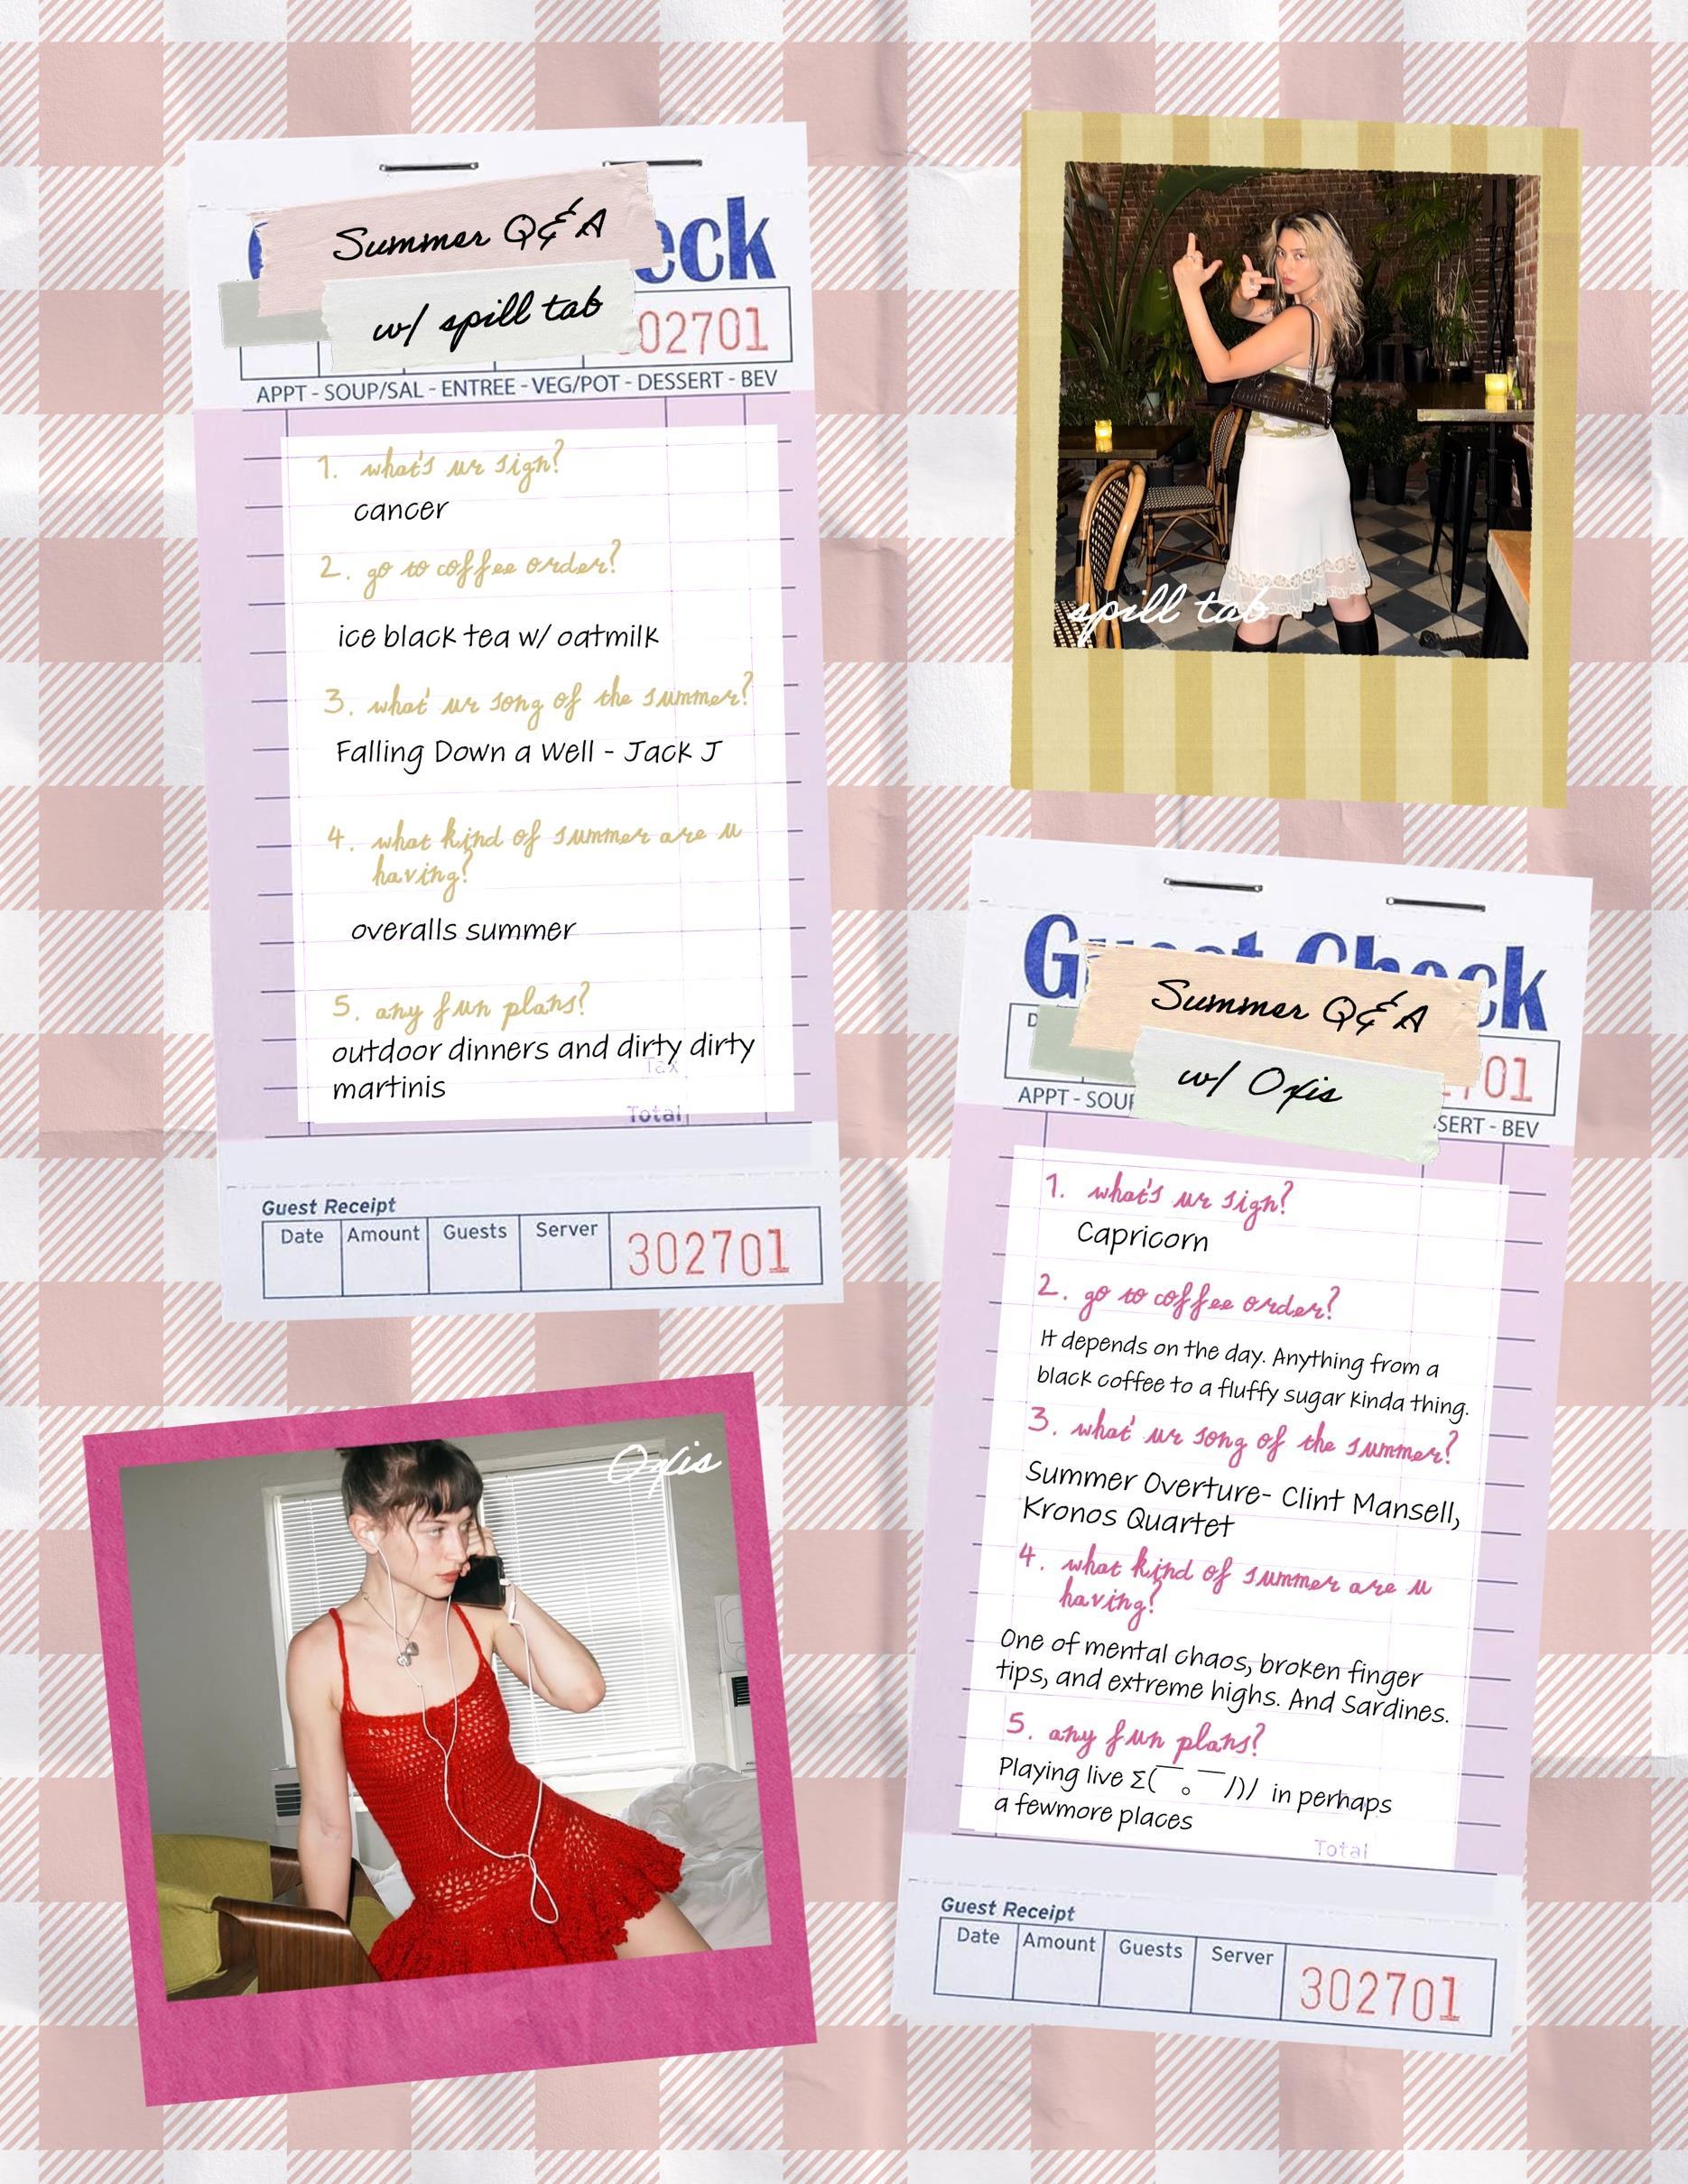 Summer Q&A
eck
w/ spill tab
02701
APPT - SOUP/SAL - ENTREE - VEG/POT - DESSERT - BEV
1. what's ur sign?
cancer
2. go to coffee order?
ice black tea w/ oatmilk
3. what' ur song of the summer?
Falling Down a Well - Jack J
4. what kind of summer are u
having?
overalls summer
5. any fun plans?
outdoor dinners and dirty dirty
martinis
Tax
Total
Guest Receipt
Date Amount Guests Server 302701
spill tab
Guest Check
Summer Q&A
w/ Oxis
701
APPT - SOUP
SERT - BEV
1. what's ur sign?
Capricorn
2. go to coffee order?
It depends on the day. Anything from a
black coffee to a fluffy sugar kinda thing.
3. what' ur song of the summer?
Summer Overture- Clint Mansell,
Kronos Quartet
4. what kind of summer are u
having?
One of mental chaos, broken finger
tips, and extreme highs. And Sardines.
5. any fun plans?
Playing live Σ(￣。￣ﾉ)ﾉ in perhaps
a fewmore places
Total
Guest Receipt
Date Amount Guests Server 302701
Oxis